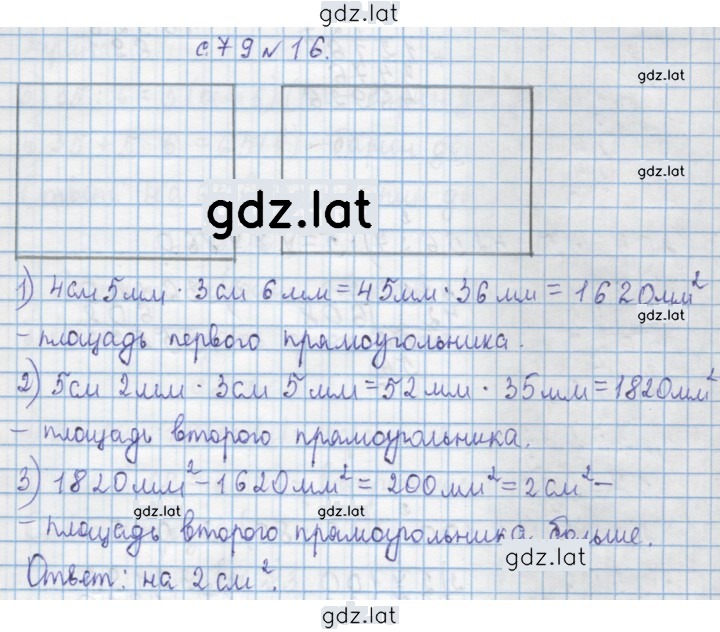 gdz.lat
с. 79 № 16.
gdz.lat
gdz.lat
gdz.lat
1) 4см 5мм · 3см 6мм = 45мм · 36мм = 1620мм²
gdz.lat
- площадь первого прямоугольника.
2) 5см 2мм · 3см 5мм = 52мм · 35мм = 1820мм²
- площадь второго прямоугольника.
3) 1820мм² - 1620мм² = 200мм² = 2см² -
gdz.lat gdz.lat
- площадь второго прямоугольника больше.
gdz.lat
Ответ: на 2см².
gdz.lat